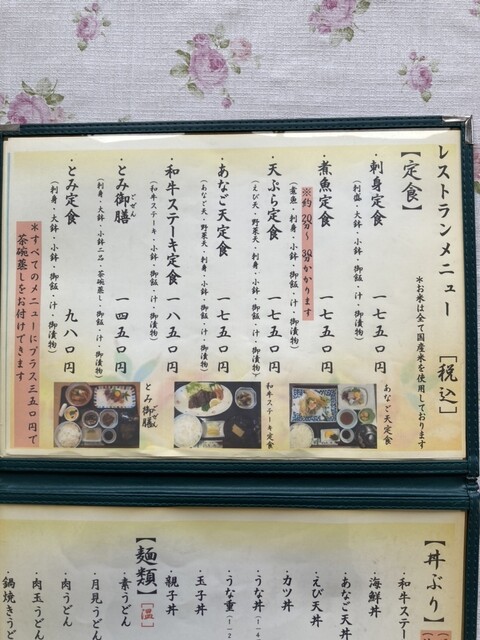 レストランメニュー　[税込]
*お米は全て国産米を使用しております
【定食】
・刺身定食　一七五〇円
(刺盛・大鉢・小鉢・御飯・汁・御漬物)
・煮魚定食　一七五〇円
※約20分～30分かかります
(煮魚・刺身・小鉢・御飯・汁・御漬物)
・天ぷら定食　一七五〇円
(えび天・野菜天・刺身・小鉢・御飯・汁・御漬物)
・あなご天定食　一七五〇円
(あなご天・野菜天・刺身・小鉢・御飯・汁・御漬物)
・和牛ステーキ定食　一八五〇円
(和牛ステーキ・小鉢・御飯・汁・御漬物)
・とみ御膳　一四五〇円
ごぜん
(刺身・大鉢・小鉢二品・茶碗蒸し・御飯・汁・御漬物)
・とみ定食　九八〇円
(刺身・大鉢・小鉢・御飯・汁・御漬物)
*すべてのメニューにプラス三五〇円で
茶碗蒸しをお付けできます
あなご天定食
和牛ステーキ定食
とみ御膳
ごぜん
【丼ぶり】
・和牛ステ
・海鮮丼
・あなご天丼
・えび天丼
・カツ丼
・うな丼
・うな重
・玉子丼
・親子丼
【麺類】
[温]
・素うどん
・月見うどん
・肉うどん
・肉玉うどん
・鍋焼きうど